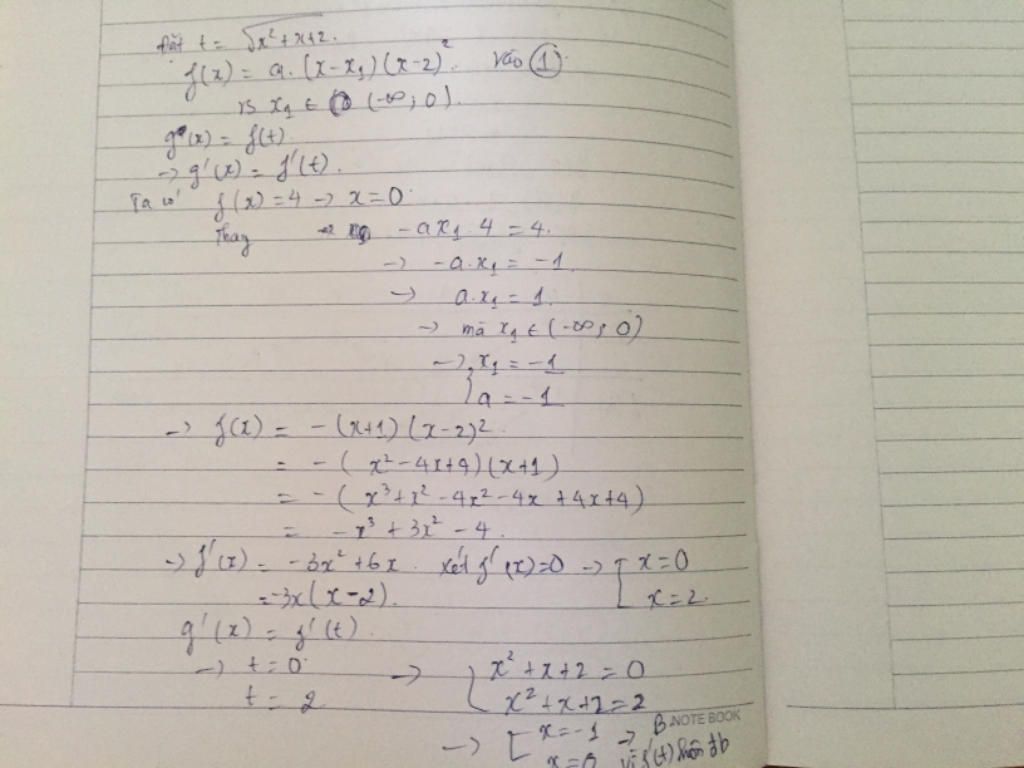 Đặt t = √x²+x+2.
f(x) = a.(x-x₁)(x-2)². vào ①.
x₁ ∈ (-∞; 0).
g(x) = f(t).
→ g'(x) = f'(t).
Ta có f(x) = 4 → x = 0.
Thay -ax₁.4 = 4.
→ -a.x₁ = -1.
→ a.x₁ = 1.
→ mà x₁ ∈ (-∞; 0)
→ { x₁ = -1
a = -1
→ f(x) = -(x+1)(x-2)².
= -(x²-4x+4)(x+1)
= -(x³+x²-4x²-4x+4x+4)
= -x³+3x²-4.
→ f'(x) = -3x²+6x. xét f'(x)=0 → [ x=0
=-3x(x-2). x=2.
g'(x) = f'(t).
→ t = 0. → { x²+x+2=0
t = 2 x²+x+2=2
B.NOTE BOOK
→ [ x=-1 → vì f'(t) luôn đb
x=0